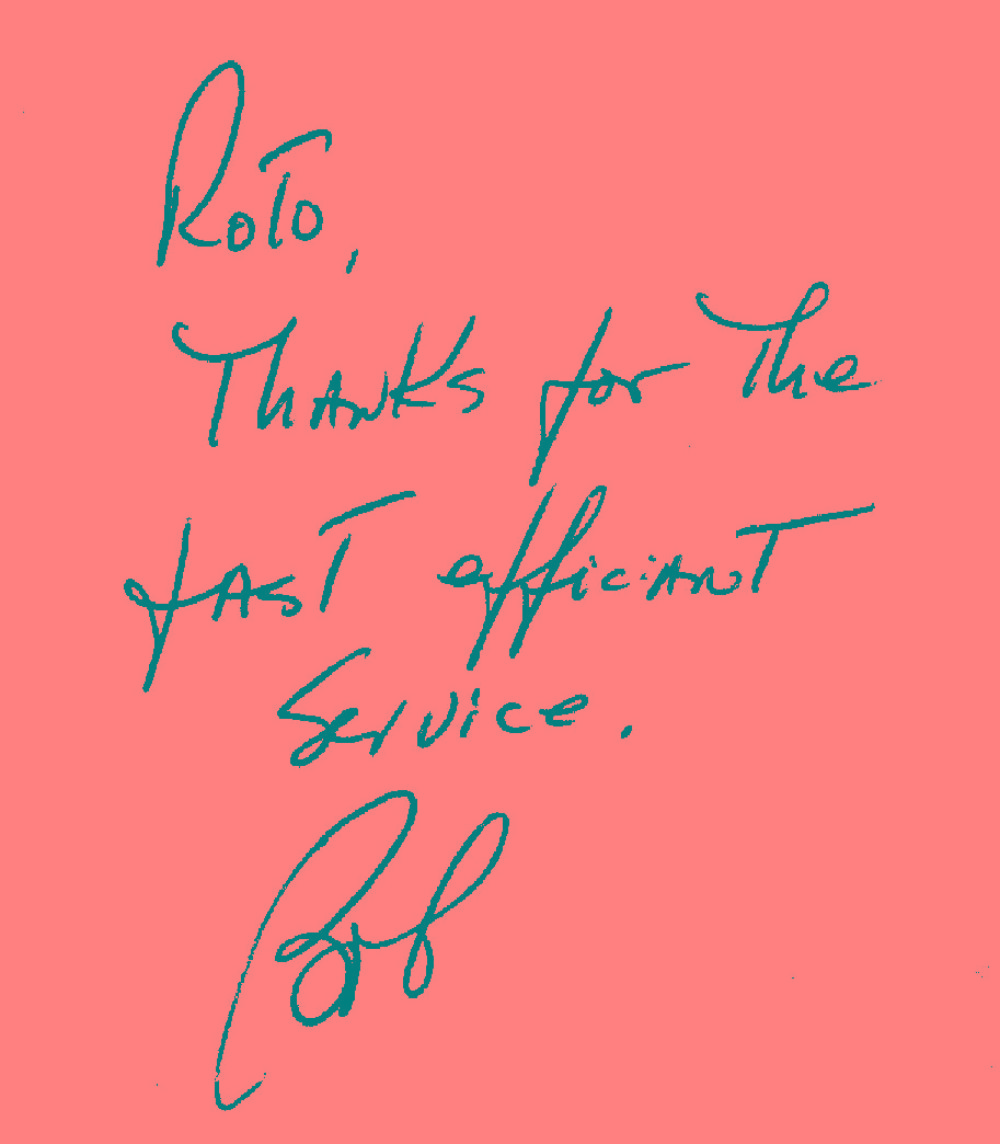 Roto,
Thanks for the
fast efficiant
Service.
Bob